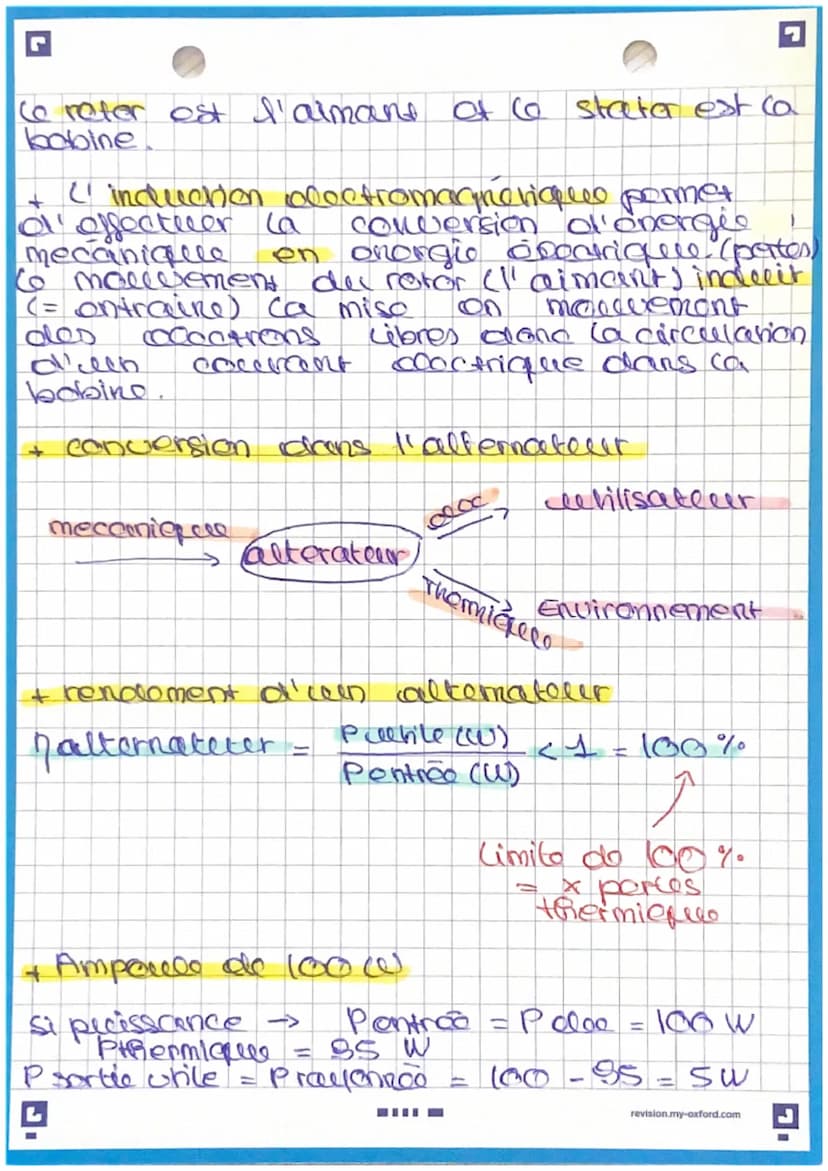 Le rotor est l'aimant et le stator est la
bobine.
+ L'induction électromagnétique permet
d'effectuer la conversion d'énergie
mécanique en énergie électrique. (pertes)
Le mouvement du rotor (l'aimant) induit
(= entraine) la mise en mouvement
des électrons libres donc la circulation
d'un courant électrique dans la
bobine.
+ conversion dans l'alternateur
mecanique
alterateur
elec
utilisateur
Thermique
Environnement
+ rendement d'un alternateur
η alternateur = P utile (W) / P entrée (W) < 1 = 100 %
Limite de 100 %
= x pertes
thermique
+ Ampoule de 100 W
si puissance → P entrée = P elec = 100 W
P thermique = 95 W
P sortie utile = P rayonnée = 100 - 95 = 5 W
revision.my-oxford.com